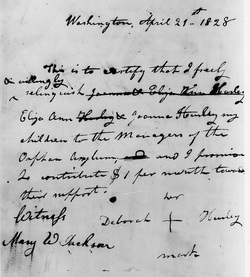 Washington, April 21st 1828
This is to certify that I freely
& willingly relinquish Joanna & Eliza Ann Hurley
Eliza Ann Hurley & Joanna Hurley my
children to the Managers of the
Orphan Asylum, and I promise
to contribute $1 per month towards
their support.
her
Witness Deborah + Hurley
Mary W Jackson mark